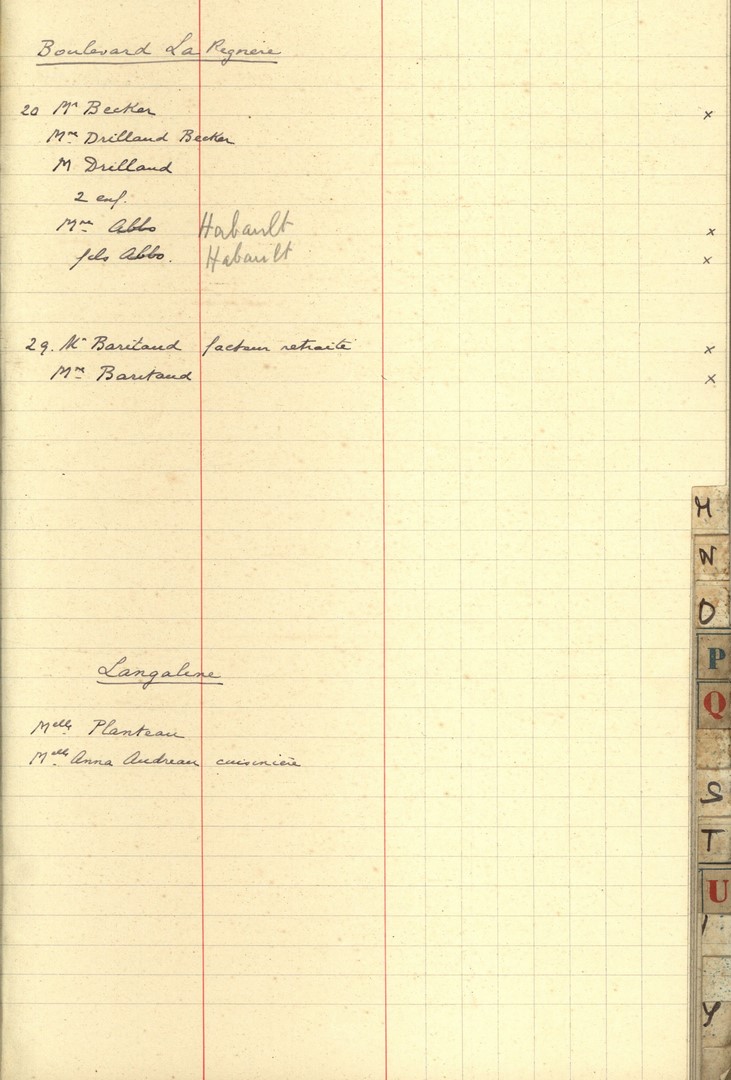 Boulevard La Regnere
20 Mr Becker x
Mme Drilland Becker
M Drilland
2 enf.
Mme Abbo Habault x
fils Abbo. Habault x
29. Mr Baritaud facteur retraité x
Mme Baritaud x
M
N
O
P
Q
S
T
U
Y
Langalene
Melle Planteau
Melle Anna Audreau cuisinière